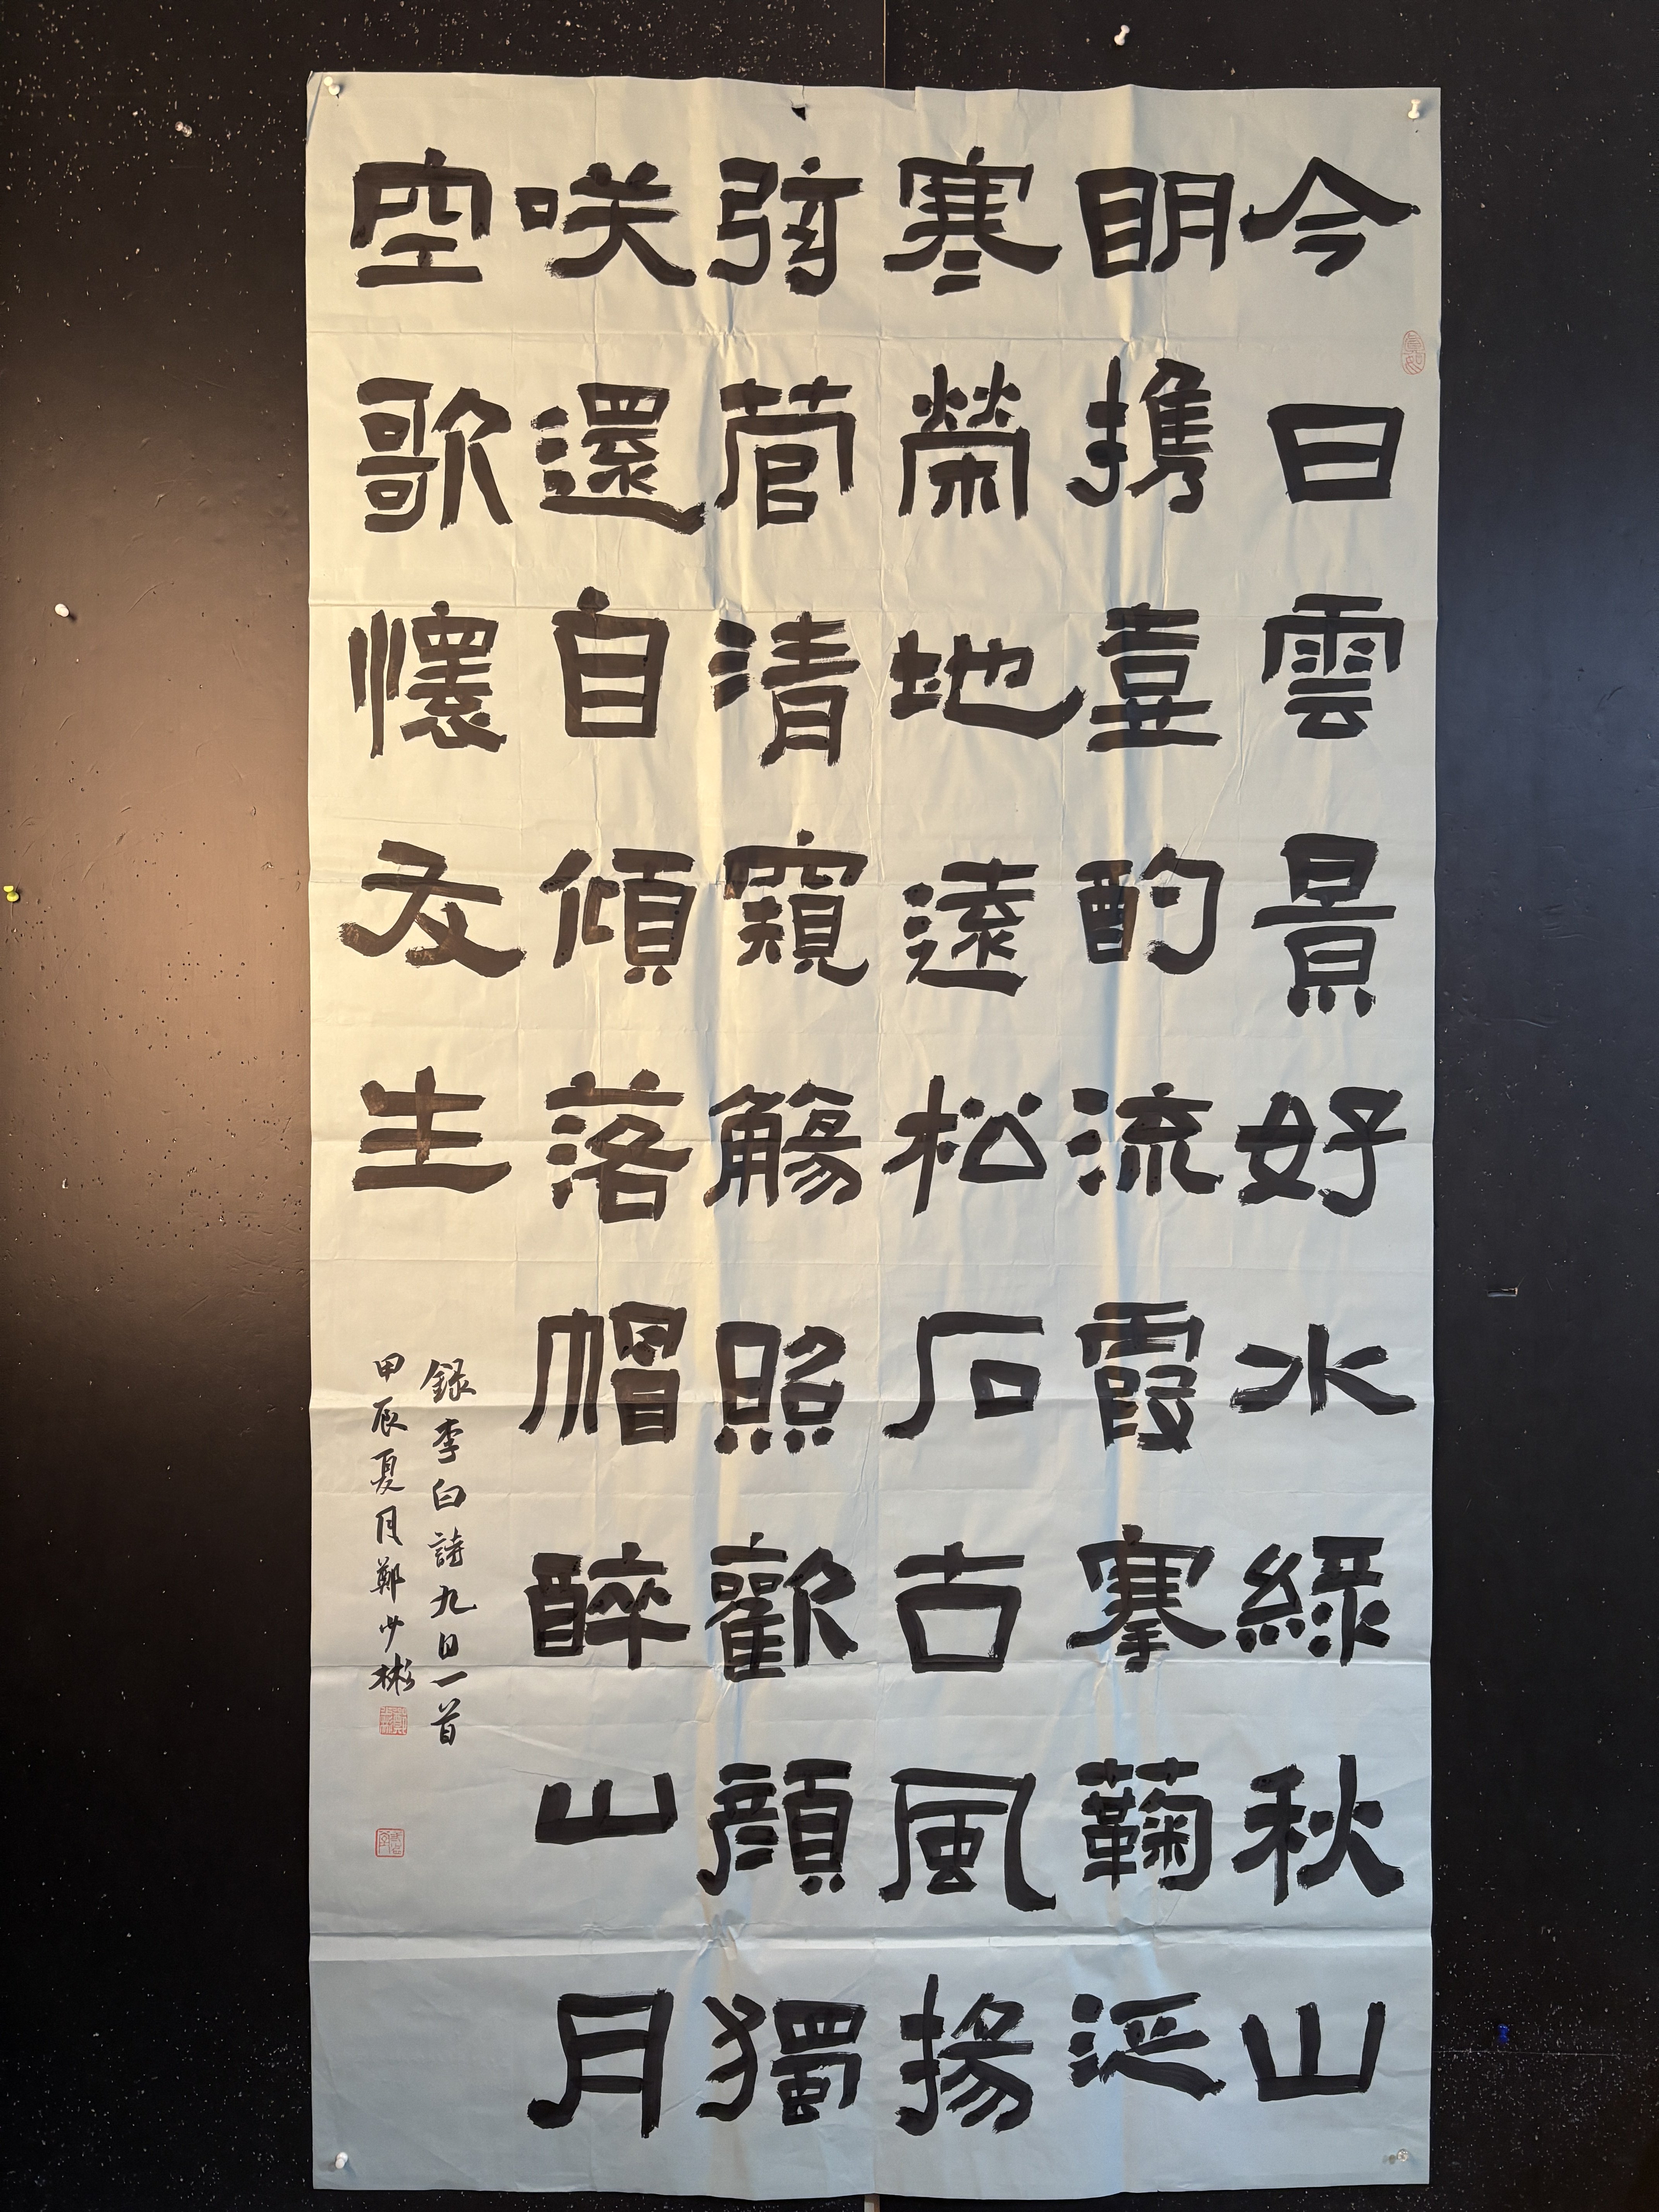 今日雲景好水綠秋山
眀携壺酌流霞搴蘜泛
寒榮地遠松石古風揚
弦菅清窺觴照歡顏獨
咲還自傾落帽醉山月
空歌懷友生
錄李白詩九日一首
甲辰夏月鄭少彬